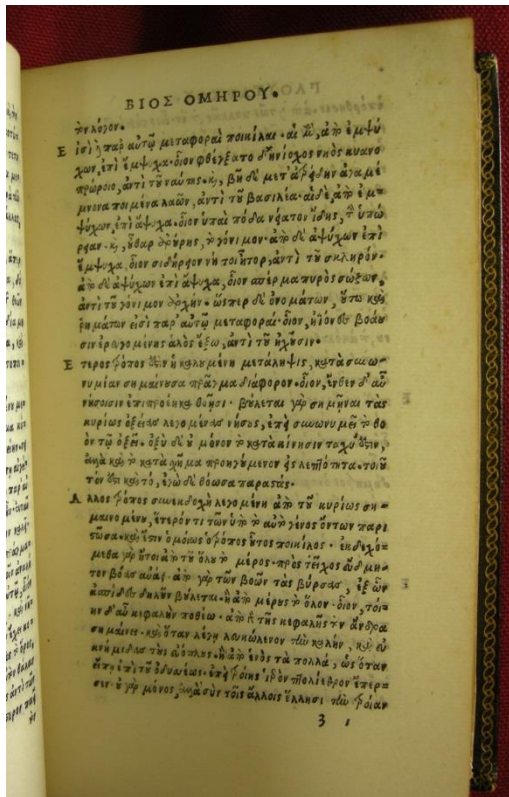 ΒΙΟΣ ΟΜΗΡΟΥ.
τὸν λόγον.
Ε ἰσὶ παρ αὐτῷ μεταφοραὶ ποικίλαι· αἱ μὲν, ἀπὸ ἐμψύ
χων, ἐπὶ ἔμψυχα· οἷον φθέγξατο δ' ἡνίοχος νηὸς κυανο
πρώροιο, ἀντὶ τοῦ ναύτης· καὶ, βῆ δὲ μετ' ἀτρείδην ἀγαμέ
μνονα ποιμένα λαῶν, ἀντὶ τοῦ βασιλέα· αἱ δὲ, ἀπὸ ἐμ
ψύχων, ἐπὶ ἄψυχα· οἷον ὑπαὶ πόδα νείατον ἴδης, τὴν ὑπώ
ρειαν· καὶ, οὖθαρ ἀρούρης, τὸ γόνιμον· ἀπὸ δὲ ἀψύχων ἐπὶ
ἔμψυχα, οἷον σιδήρειον νύ τοι ἦτορ, ἀντὶ τοῦ σκληρόν·
ἀπὸ δὲ ἀψύχων ἐπὶ ἄψυχα, οἷον σπέρμα πυρὸς σώζων,
ἀντὶ τοῦ γόνιμον ἀρχήν· ὥσπερ δὲ ὀνομάτων, οὕτω καὶ
ῥημάτων εἰσὶ παρ' αὐτῷ μεταφοραί· οἷον, ἠϊόνες βοόω
σιν ἐρευγομένης ἁλὸς ἔξω, ἀντὶ τοῦ ἠχοῦσιν.
Ε τερος τρόπος ἐστὶν ἡ καλουμένη μετάληψις, κατὰ συνω
νυμίαν σημαίνουσα πρᾶγμα διάφορον· οἷον, ἔνθεν δ' αὖ
νήσοισιν ἐπιπροέηκα θοῇσι· βούλεται γὰρ σημῆναι τὰς
κυρίως ὀξείας λεγομένας νήσους, ἐπεὶ συνωνυμεῖ τὸ θο
ὸν τῷ ὀξεῖ· ὀξὺ δὲ οὐ μόνον τὸ κατὰ κίνησιν ταχύ ἐστιν,
ἀλλὰ καὶ τὸ κατὰ σχῆμα προηγούμενον εἰς λεπτότητα· τοιοῦ
τόν ἐστι καὶ τό, ἐγὼ δὲ θόωσα παραστάς.
Α λλος τρόπος συνεκδοχὴ λεγομένη ἀπὸ τοῦ κυρίως ση
μαινομένου, ἕτερόν τι τῶν ὑπὸ τὸ αὐτὸ γένος ὄντων παρι
στῶσα· καὶ ἔστιν ὁμοίως ὁ τρόπος οὗτος ποικίλος· ἐκδεχό
μεθα γὰρ ἤτοι ἀπὸ τοῦ ὅλου τὸ μέρος· πρὸς τεῖχος εὔδμη
τον βόας αὔας· ἀπὸ γὰρ τῶν βοῶν τὰς βύρσας, ἐξ ὧν
ἀσπίδες δηλοῦν βούλεται· ἢ ἀπὸ μέρους τὸ ὅλον· οἷον, τοί
ην δ' αὖ κεφαλὴν ποθέω· ἀπὸ τῆς κεφαλῆς τὸν ἄνδρα
σημαίνει· καὶ ὅταν λέγῃ λευκώλενον τὴν καλὴν, καὶ εὐ
κνήμιδας τοὺς εὐόπλους· ἢ ἀπὸ ἑνὸς τὰ πολλά, ὡς ὅταν
εἴπῃ ἐπὶ τοῦ ὀδυσσέως· ἐπεὶ τροίης ἱερὸν πτολίεθρον ἔπερ
σεν· οὐ γὰρ μόνος, ἀλλὰ σὺν τοῖς ἄλλοις ἕλλησι τὴν τροίαν
3 1